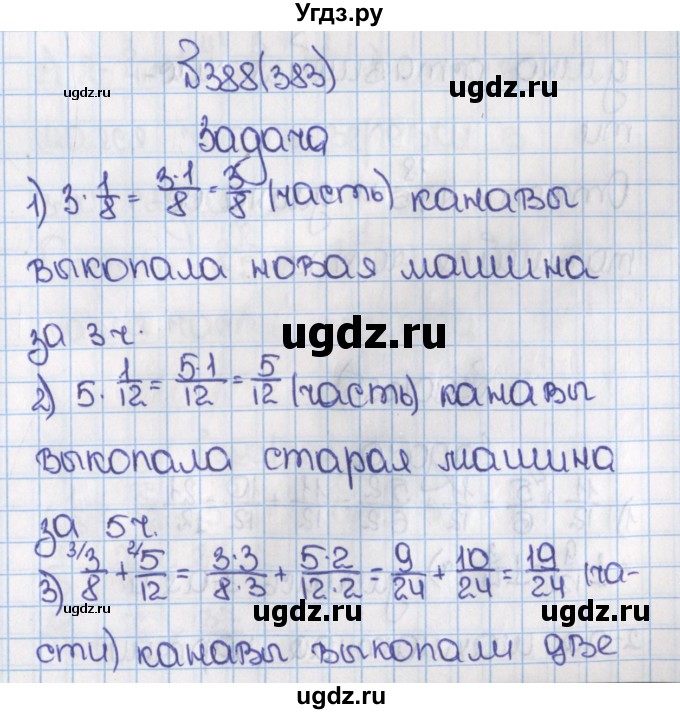 Угдз.ру
№388(383)
ugdz.ru
ugdz.ru
Задача
1) 3·1/8 = 3·1/8 = 3/8 (часть) канавы
выкопала новая машина
за 3ч.
ugdz.ru
2) 5·1/12 = 5·1/12 = 5/12 (часть) канавы
выкопала старая машина
за 5ч.
ugdz.ru
ugdz.ru
3) 3/3/8 + 2/5/12 = 3·3/8·3 + 5·2/12·2 = 9/24 + 10/24 = 19/24 (ча-
ugdz.ru
сти) канавы выкопали две
ugdz.ru